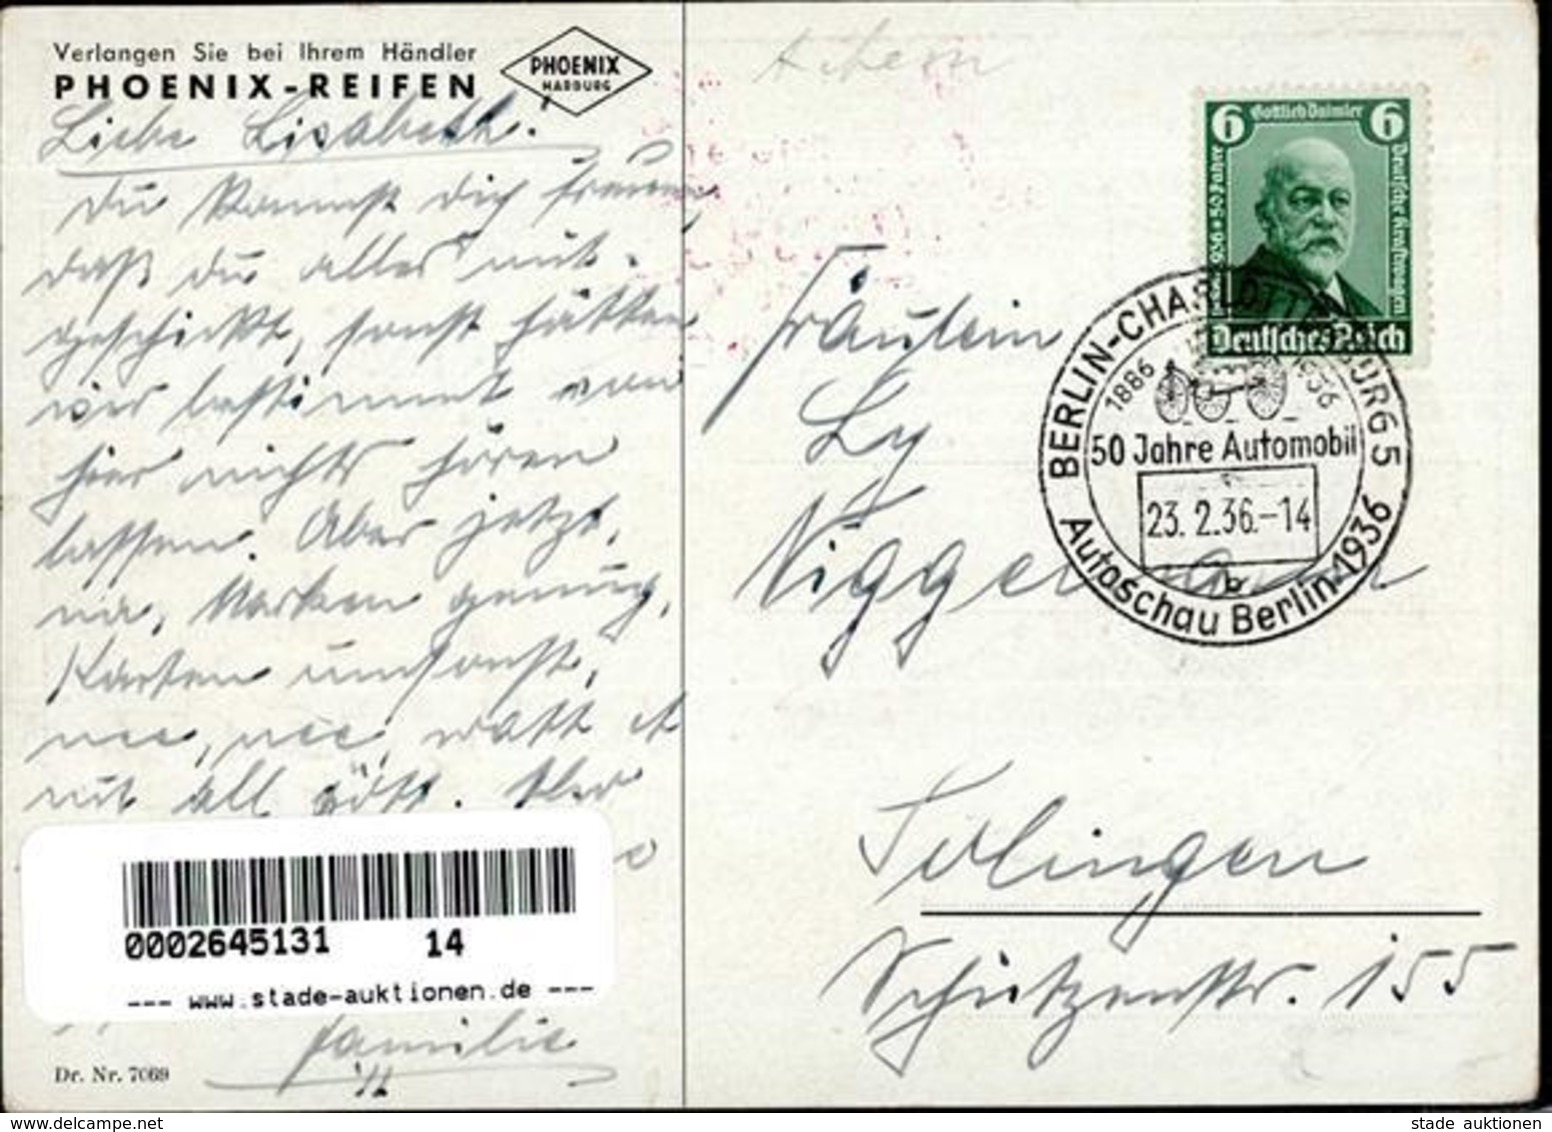 Verlangen Sie bei Ihrem Händler
PHOENIX-REIFEN
PHOENIX
HARBURG
Liebe Lisabeth!
Du kannst dich freuen,
daß du alles mit-
geschickt, sonst hätten
wir bestimmt von
hier nichts hören
lassen. Aber jetzt,
na, Marken genug,
Karten umsonst,
nee, nee, watt et
nit all jött. Aber
Familie
Dr. Nr. 7069
0002645131 14
--- www.stade-auktionen.de ---
6 Gottlieb Daimler 6
1936 50 Jahre
Deutsche Kraftwagen
Deutsches Reich
BERLIN-CHARLOTTENBURG 5
1886 1936
50 Jahre Automobil
23. 2.36.-14
b
Autoschau Berlin 1936
Fräulein
Ly
Niggemann
Solingen
Schützenstr. 155
stade auktionen
www.delcampe.net